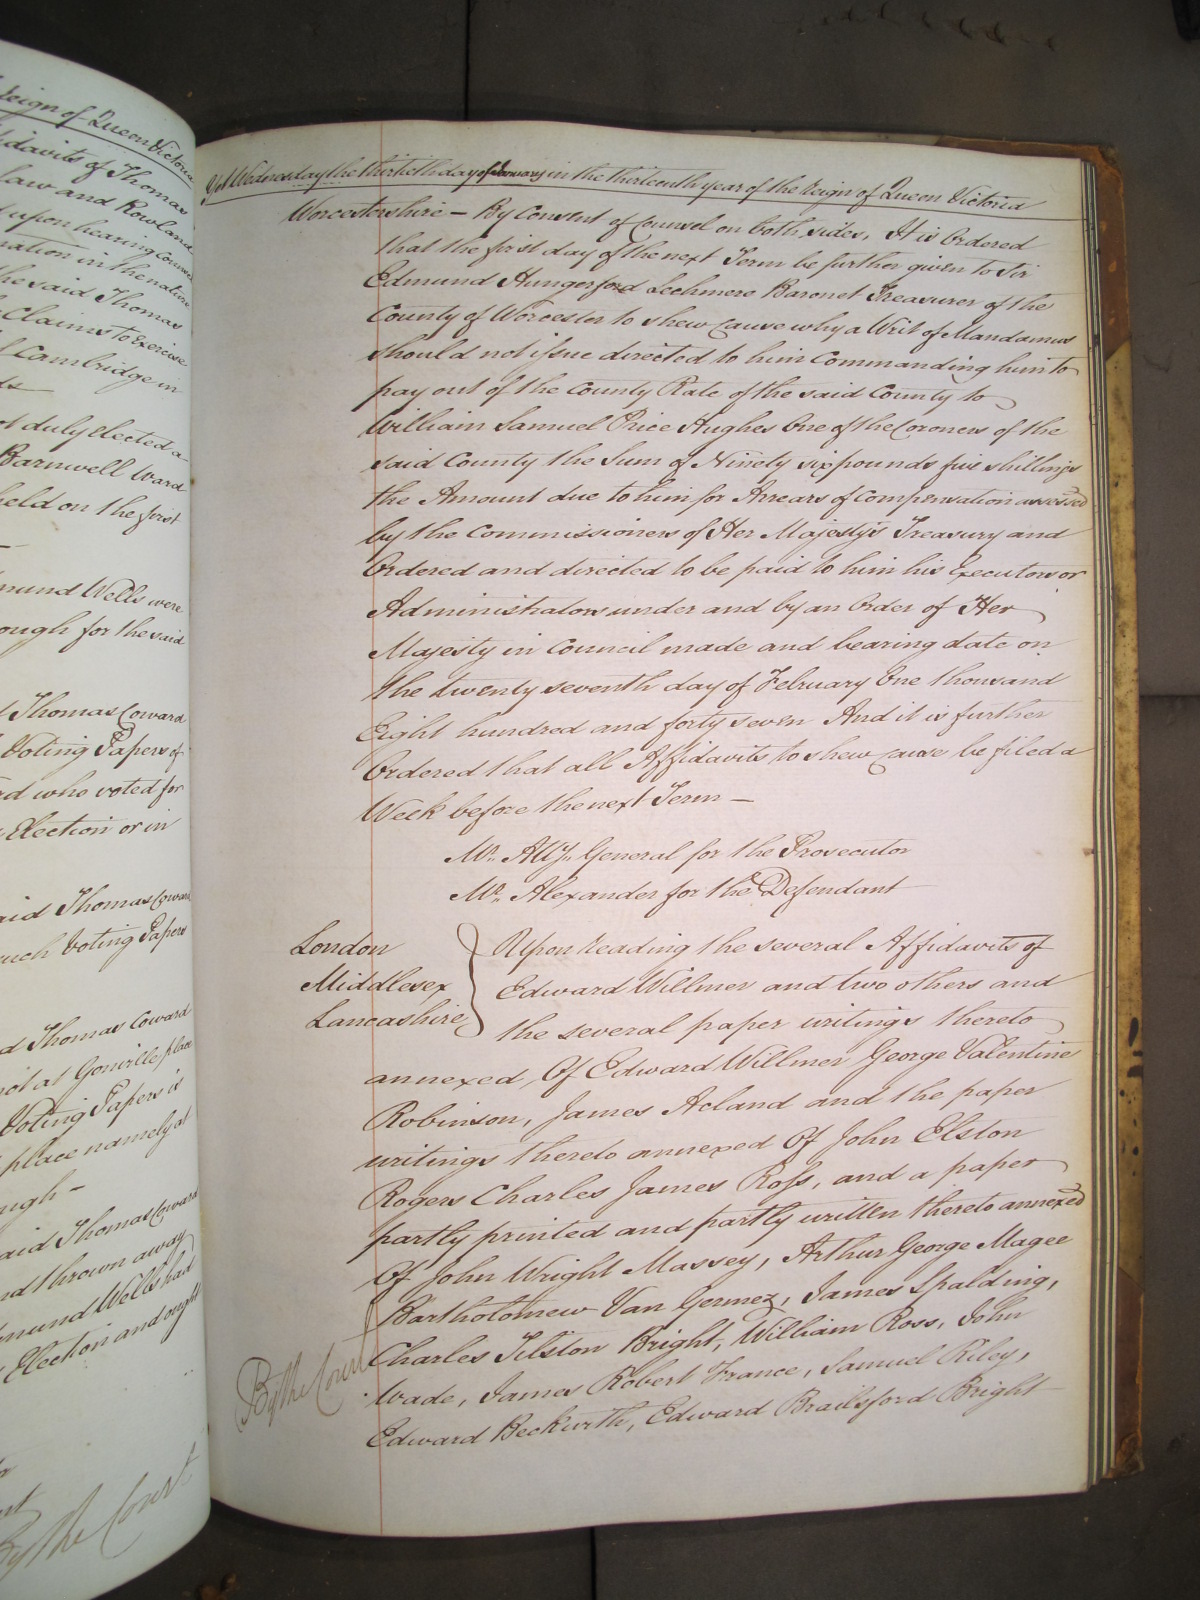 Reign of Queen Victoria
Affidavits of Thomas
law and Rowland
upon hearing Counsel
in the nature
the said Thomas
Claims to Exercise
Cambridge in
duly elected a
Barnwell Ward
held on the first
Wells were
for the said
Thomas Coward
Voting Papers of
who voted for
Election or in
said Thomas Coward
such Voting Papers
Thomas Coward
not at Gonville place
Voting Papers is
place namely at
said Thomas Coward
and thrown away
Wells had
Election and ought
By the Court
Yet Wednesday the thirtieth day of January in the thirteenth year of the Reign of Queen Victoria
Worcestershire – By Consent of Counsel on both sides, It is Ordered
that the first day of the next Term be further given to Sir
Edmund Hungerford Lechmere Baronet Treasurer of the
County of Worcester to shew cause why a Writ of Mandamus
should not issue directed to him Commanding him to
pay out of the County Rate of the said County to
William Samuel Price Hughes One of the Coroners of the
said County the Sum of Ninety six pounds five shillings
the Amount due to him for Arrears of Compensation assessed
by the Commissioners of Her Majesty's Treasury and
Ordered and directed to be paid to him his Executors or
Administrators under and by an Order of Her
Majesty in Council made and bearing date on
the twenty seventh day of February One thousand
Eight hundred and forty seven And it is further
Ordered that all Affidavits to shew cause be filed a
Week before the next Term –
Mr. Atty. General for the Prosecutor
Mr. Alexander for the Defendant
London
Middlesex
Lancashire
Upon reading the several Affidavits of
Edward Willmer and two others and
the several paper writings thereto
annexed, Of Edward Willmer George Valentine
Robinson, James Acland and the paper
writings thereto annexed Of John Elston
Rogers Charles James Ross, and a paper
partly printed and partly written thereto annexed
Of John Wright Massey, Arthur George Magee
Bartholomew Van Gennez, James Spalding,
Charles Tilston Bright, William Ross, John
Wade, James Robert France, Samuel Riley,
Edward Beckwith, Edward Brailsford Bright
By the Court